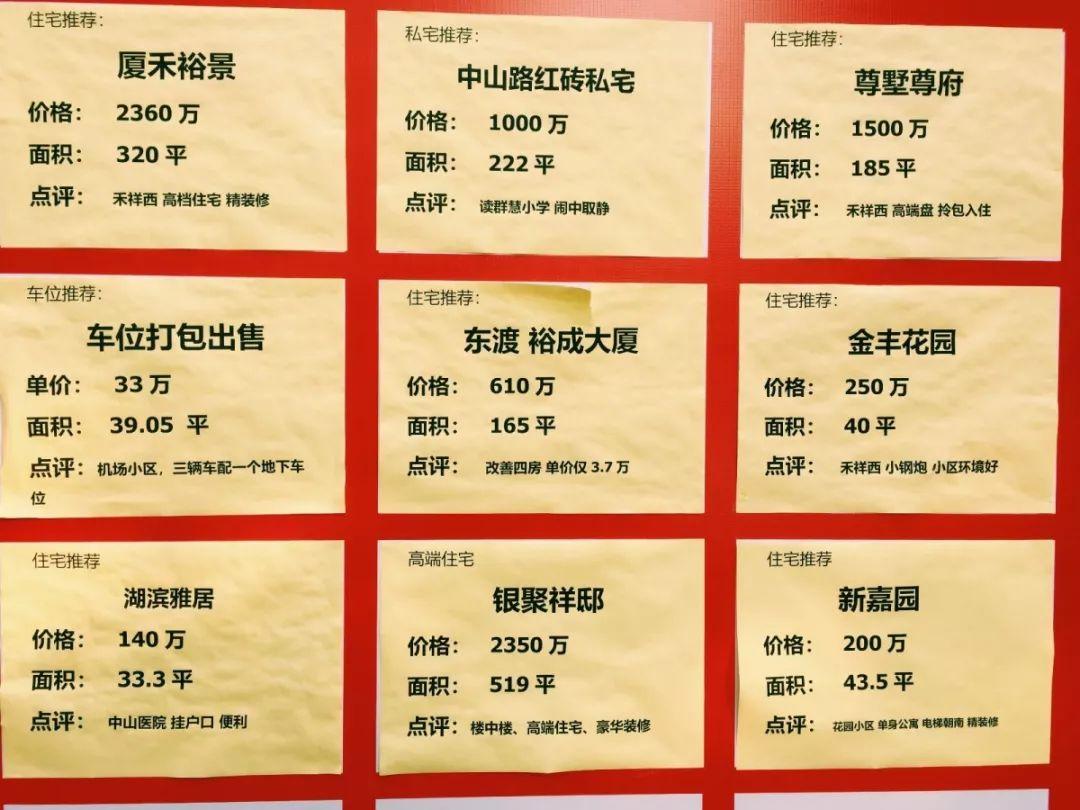 住宅推荐：
厦禾裕景
价格： 2360 万
面积： 320 平
点评： 禾祥西 高档住宅 精装修
私宅推荐：
中山路红砖私宅
价格： 1000 万
面积： 222 平
点评： 读群慧小学 闹中取静
住宅推荐：
尊墅尊府
价格： 1500 万
面积： 185 平
点评： 禾祥西 高端盘 拎包入住
车位推荐：
车位打包出售
单价： 33 万
面积： 39.05 平
点评： 机场小区，三辆车配一个地下车
位
住宅推荐：
东渡 裕成大厦
价格： 610 万
面积： 165 平
点评： 改善四房 单价仅 3.7 万
住宅推荐：
金丰花园
价格： 250 万
面积： 40 平
点评： 禾祥西 小钢炮 小区环境好
住宅推荐
湖滨雅居
价格： 140 万
面积： 33.3 平
点评： 中山医院 挂户口 便利
高端住宅
银聚祥邸
价格： 2350 万
面积： 519 平
点评： 楼中楼、高端住宅、豪华装修
住宅推荐
新嘉园
价格： 200 万
面积： 43.5 平
点评： 花园小区 单身公寓 电梯朝南 精装修